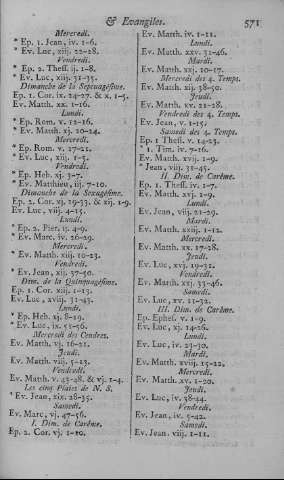 & Evangiles. 571
Mercredi.
* Ep. 1. Jean, iv. 1-6.
* Ev. Luc, xiij. 22-28.
Vendredi.
* Ep. 2. Thess. ij. 1-8.
* Ev. Luc, xiij. 31-35.
Dimanche de la Septuagésime.
Ep. 1. Cor. ix. 24-27. & x. 1-5.
Ev. Matth. xx. 1-16.
Lundi.
* Ep. Rom. v. 12-16.
* Ev. Matth. xj. 20-24.
Mercredi.
* Ep. Rom. v. 17-21.
* Ev. Luc, xiij. 1-5.
Vendredi.
* Ep. Heb. xj. 3-7.
* Ev. Matthieu, iij. 7-10.
Dimanche de la Sexagésime.
Ep. 2. Cor. xj. 19-33. & xij. 1-9.
Ev. Luc, viij. 4-15.
Lundi.
* Ep. 2. Pier. ij. 4-9.
* Ev. Marc. iv. 26-29.
Mercredi.
* Ev. Matth. xiij. 10-23.
Vendredi.
* Ev. Jean, xij. 37-50.
Dim. de la Quinquagésime.
Ep. 1. Cor. xiij. 1-13.
Ev. Luc, xviij. 31-43.
Lundi.
* Ep. Heb. xj. 8-19.
* Ev. Luc, ix. 51-56.
Mercredi des Cendres.
Ev. Matth. vj. 16-21.
Jeudi.
Ev. Matth. viij. 5-13.
Vendredi.
Ev. Matth. v. 43-48. & vj. 1-4.
Les cinq Plaies de N. S.
* Ev. Jean, xix. 28-35.
Samedi.
Ev. Marc, vj. 47-56.
I. Dim. de Carême.
Ep. 2. Cor. vj. 1-10.
Ev. Matth. iv. 1-11.
Lundi.
Ev. Matth. xxv. 31-46.
Mardi.
Ev. Matth. xxj. 10-17.
Mercredi des 4. Temps.
Ev. Matth. xij. 38-50.
Jeudi.
Ev. Matth. xv. 21-28.
Vendredi des 4. Temps.
Ev. Jean, v. 1-15.
Samedi des 4. Temps.
Ep. 1 Thess. v. 14-23.
* 1. Tim. iv. 7-16.
Ev. Matth. xvij. 1-9.
* Jean, viij. 31-45.
II. Dim. de Carême.
Ep. 1. Thess. iv. 1-7.
Ev. Matth. xvj. 1-9.
Lundi.
Ev. Jean, viij. 21-29.
Mardi.
Ev. Matth. xxiij. 1-12.
Mercredi.
Ev. Matth. xx. 17-28.
Jeudi.
Ev. Luc, xvj. 19-31.
Vendredi.
Ev. Matth. xxj. 33-46.
Samedi.
Ev. Luc, xv. 11-32.
III. Dim. de Carême.
Ep. Ephes. v. 1-9.
Ev. Luc, xj. 14-26.
Lundi.
Ev. Luc, iv. 23-30.
Mardi.
Ev. Matth. xviij. 15-22.
Mercredi.
Ev. Matth. xv. 1-20.
Jeudi.
Ev. Luc, iv. 38-44.
Vendredi.
Ev. Jean, iv. 5-42.
Samedi.
Ev. Jean. viij. 1-11.